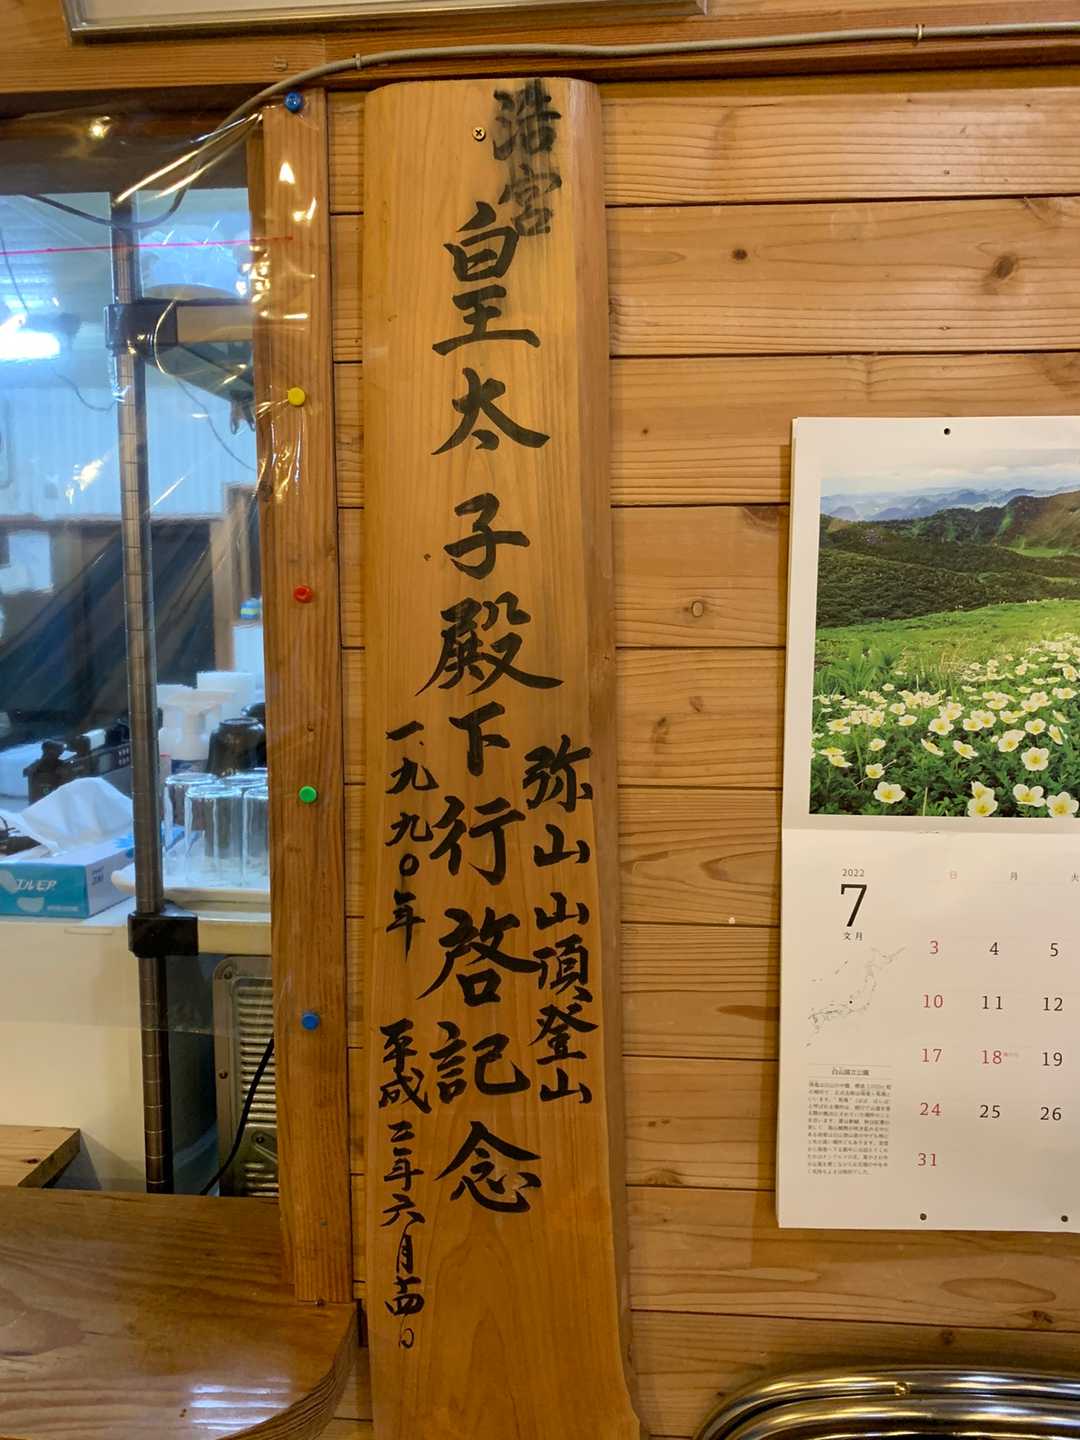 浩宮
皇太子殿下行啓記念
弥山山頂登山
一九九〇年 平成二年六月十四日
エルモア
2022
7
文月
日 月 火
3 4 5
10 11 12
17 18 19
24 25 26
31
白山国立公園